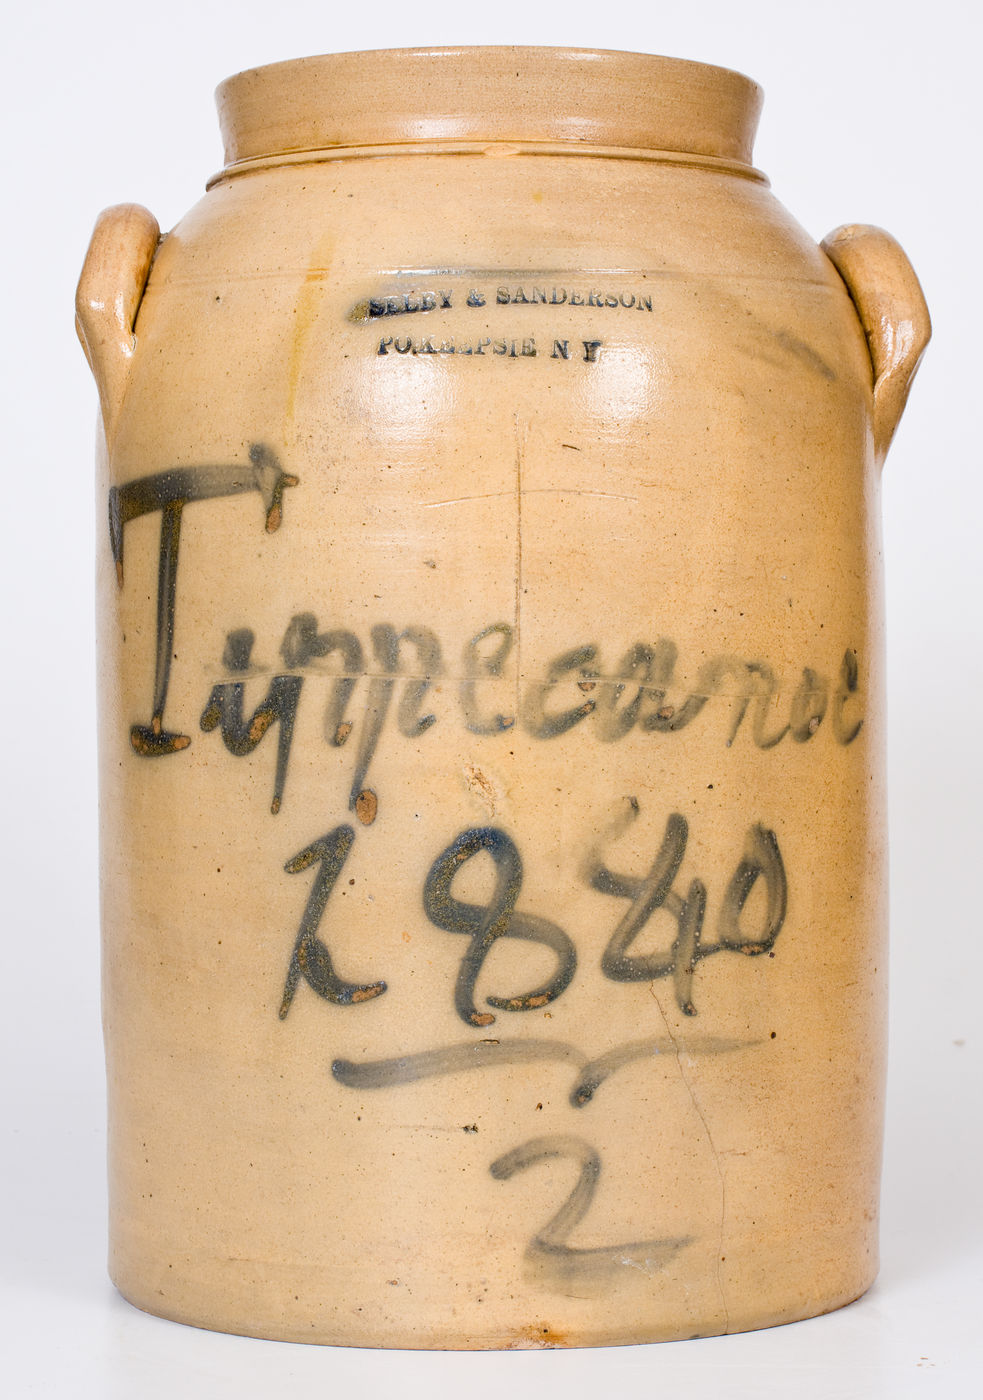 SELBY & SANDERSON
PO.KEEPSIE N Y
Tippecanoe
1840
2